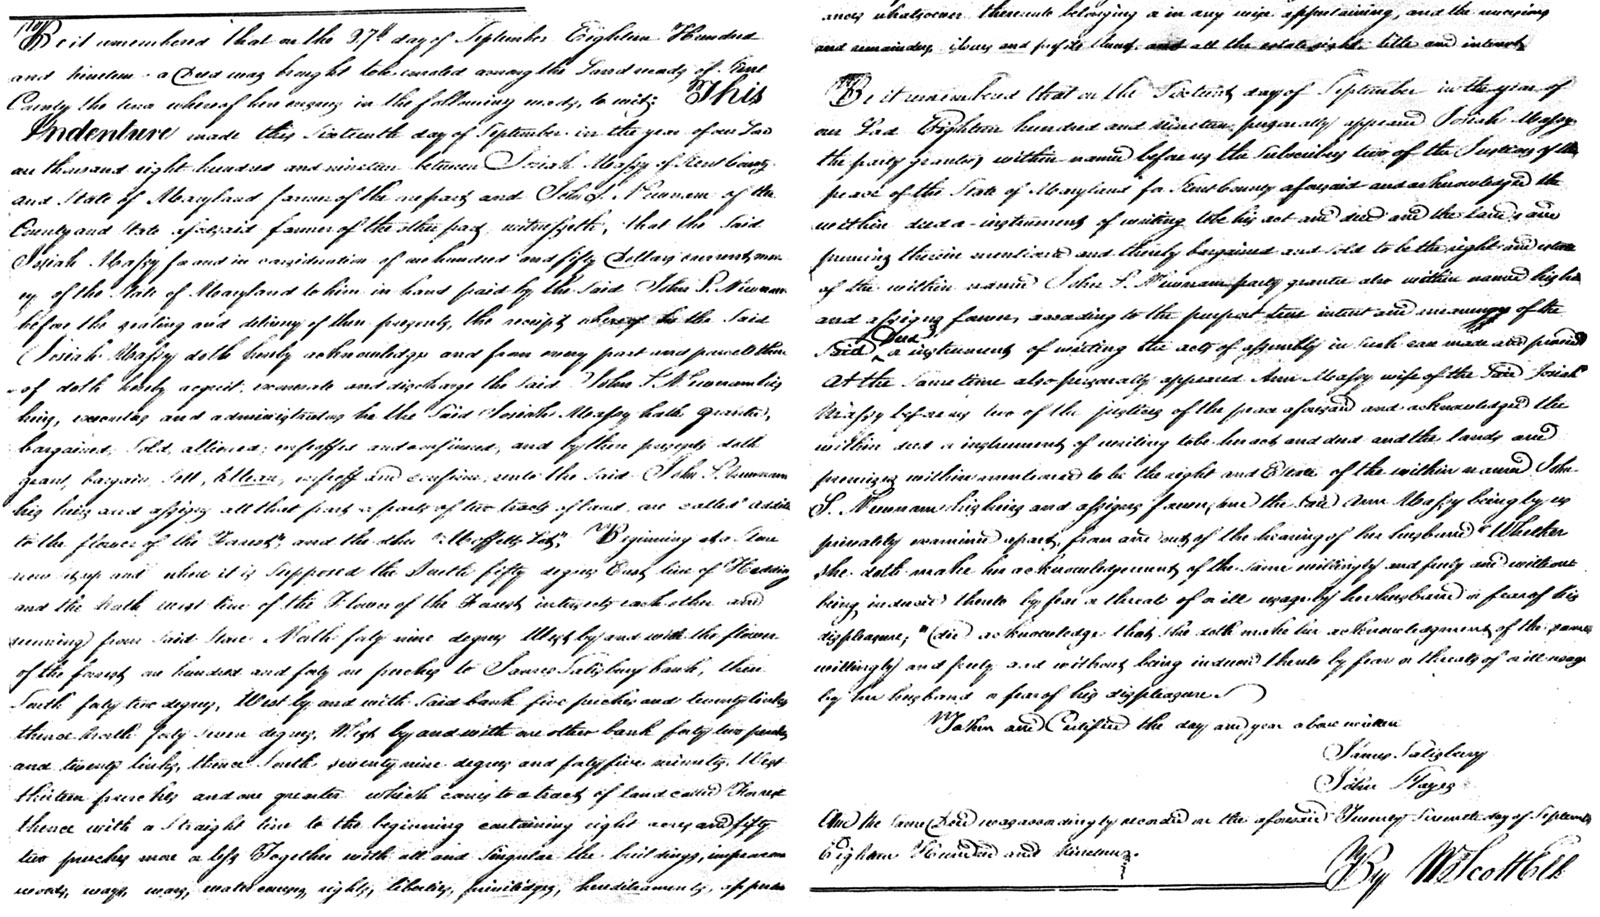 Be it remembered that on the 27th day of September Eighteen Hundred
and nineteen a Deed was brought to be recorded among the Land records of Kent
County the tenor whereof here ensues in the following words, to wit; This
Indenture made this Sixteenth day of September in the year of our Lord
one thousand eight hundred and nineteen between Josiah Massy of Kent County
and State of Maryland farmer of the one part and John S. Newnam of the
County and State aforesaid farmer of the other part, witnesseth, that the Said
Josiah Massy for and in consideration of one hundred and fifty Dollars current mon
ey of the State of Maryland to him in hand paid by the Said John S. Newnam
before the sealing and delivery of these presents, the receipt whereof he the Said
Josiah Massy doth hereby acknowledge and from every part and parcell there
of doth hereby acquit, exonerate and discharge the Said John S. Newnam his
heirs, executors and administrators he the Said Josiah Massy hath granted,
bargained, Sold, alliened, enfeoffed and confirmed, and by these presents doth
grant, bargain, Sell, allien, enfeoff and confirm, unto the Said John S. Newnam
his heirs and assigns all that part or parts of two tracts of land, one called "addition
to the flower of the Forest", and the other "Moffetts Lot", Beginning at a Stone
now set up and where it is Supposed the South fifty degrees East line of
and the North west line of the Flower of the Forest intersects each other and
running from Said Stone North forty nine degrees West by and with the flower
of the forest one hundred and forty one perches to James Salisbury bank, then
South forty two degrees, West by and with Said bank five perches and twenty links
thence North forty seven degrees, West by and with one other bank forty two perches
and twenty links, thence South seventy nine degrees and forty five minutes West
thirteen perches and one quarter which comes to a tract of land called
thence with a Straight line to the beginning containing eight acres and fifty
two perches more or less Together with all and Singular the buildings, improve
ments, ways, water courses, rights, liberties, priviledges, hereditaments, appurten
ances whatsoever thereunto belonging or in any wise appertaining, and the reversions
and remainders, issues and profits thereof and all the estate right, title and interest
Be it remembered that on the Sixteenth day of September in the year of
our Lord Eighteen hundred and nineteen, personally appeared Josiah Massy
the party grantor, within named before us the Subscribers two of the Justices of the
peace of the State of Maryland for Kent County aforesaid and acknowledged the
within deed or instrument of writing to be his act and deed and the lands and
premises therein mentioned and thereby bargained and sold to be the right and estate
of the within named John S. Newnam party grantee also within named his heirs
and assigns forever, according to the purport true intent and meaning of the
Said Deed or instrument of writing the acts of assembly in Such case made and provided
At the Same time also personally appeared Ann Massy wife of the Said Josiah
Massy before us two of the justices of the peace aforesaid and acknowledged the
within deed or instrument of writing to be her act and deed and the lands and
premises within mentioned to be the right and Estate of the within named John
S. Newnam his heirs and assigns forever, and the Said Ann Massy being by us
privately examined apart, from and out of the hearing of her husband "Whether
she doth make her acknowledgement of the same willingly and freely and without
being induced thereto by fear or threats of or ill usage by her husband or fear of his
displeasure," did acknowledge that She doth make her acknowledgment of the same
willingly and freely and without being induced thereto by fear or threats of or ill usage
by her husband or fear of his displeasure
Taken and Certified the day and year above written
James Salisbury
John Hayes
And the Same Deed was accordingly recorded on the aforesaid Twenty Seventh day of September
Eighteen Hundred and Nineteen.
By Wm Scott Clk